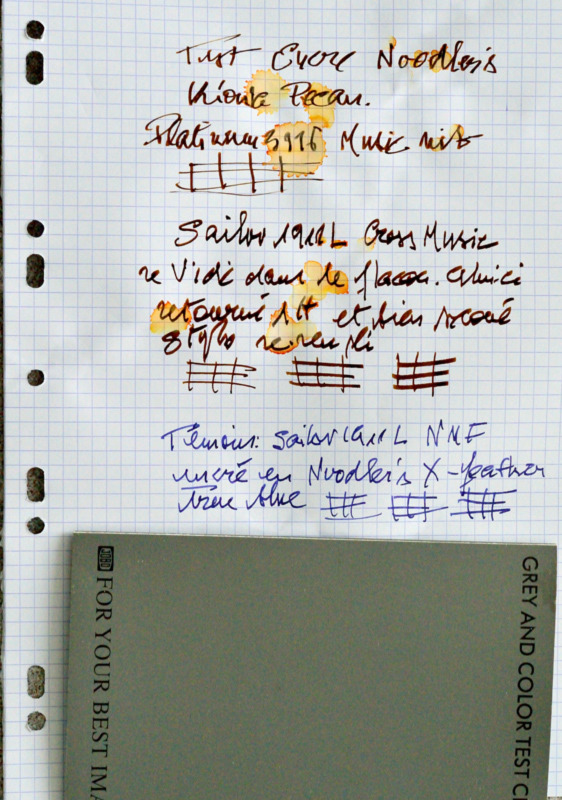 Test Encre Noodler's
Kiowa Pecan.
Platinum 3776 Music nib
Sailor 1911L Cross Music
re Vidé dans le flacon. Celui ci
retourné 1H et bien secoué
Stylo re rempli
Témoin: Sailor 1911 L NMF
encré en Noodler's X-feather
True Blue
JOBO
FOR YOUR BEST IMA
GREY AND COLOR TEST C